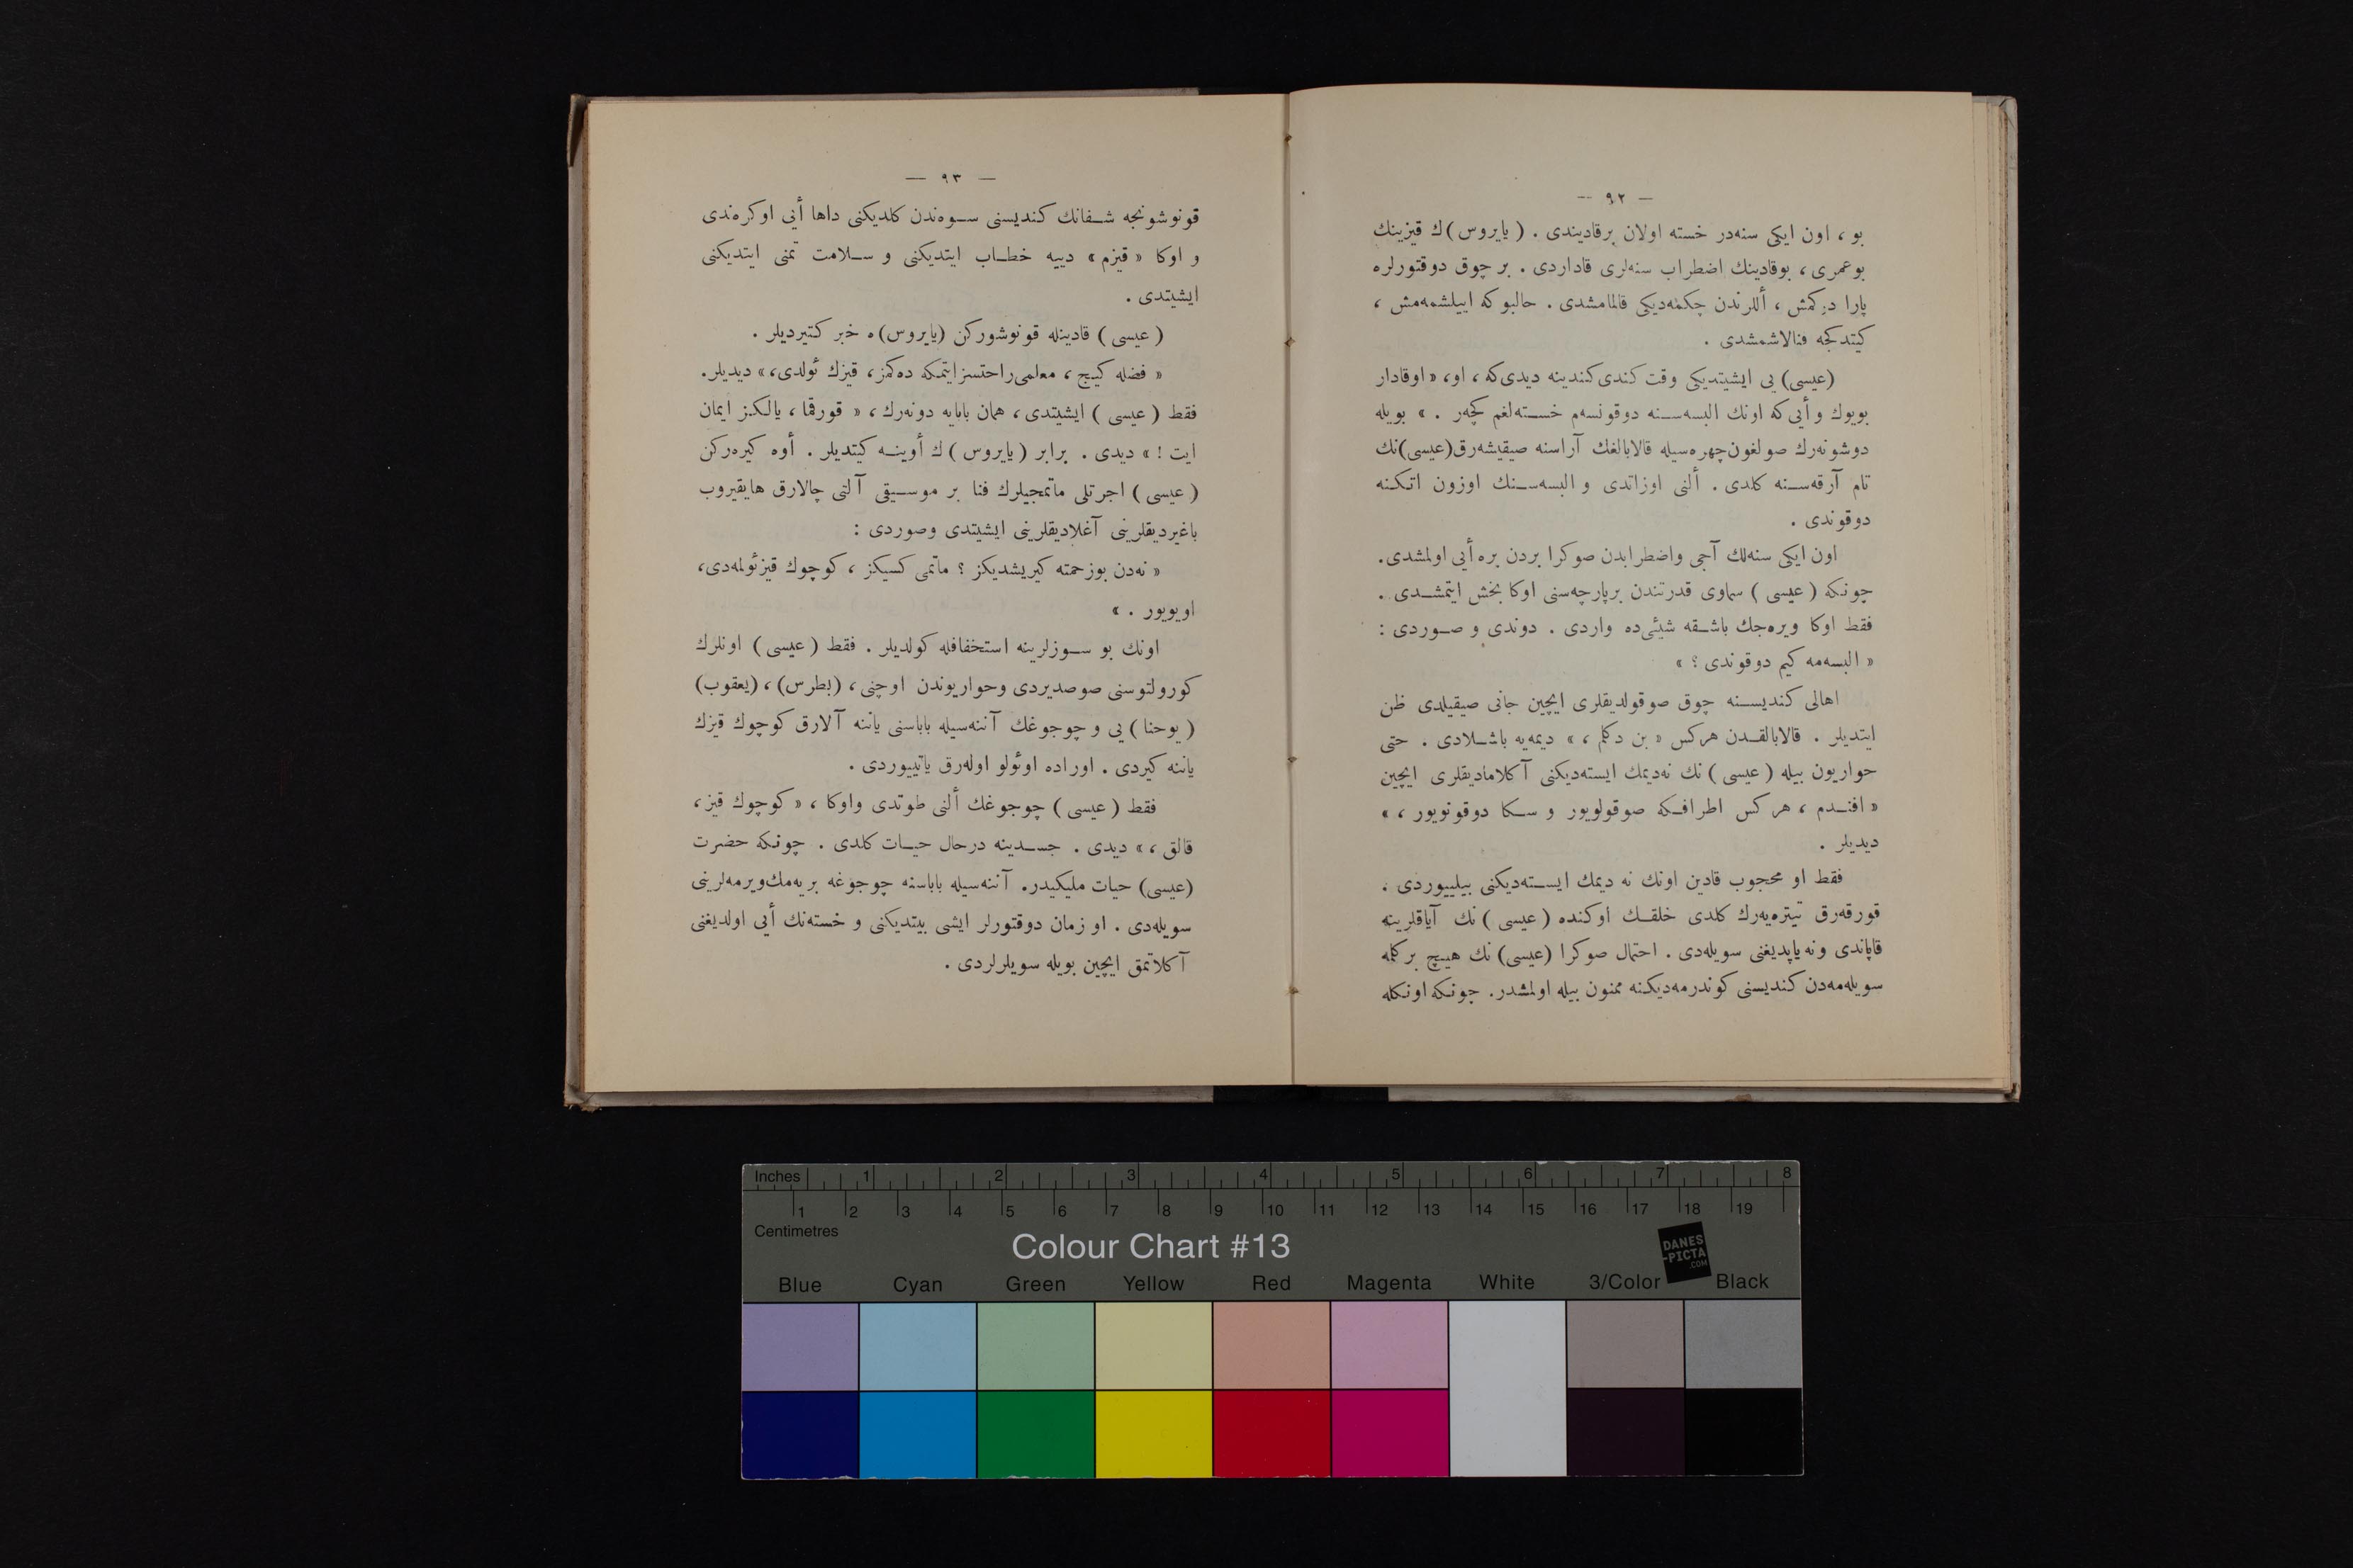 — ٩٢ —
بو ، اون ایکی سنه‌در خسته اولان برقادیندی . ( یایروس)ك قیزینك
بوعمری ، بوقادینك اضطراب سنه‌لری قاداردی . بر چوق دوقتورلره
پارا دوکمش ، أللرندن چکمه‌دیکی قالمامشدی . حالبوکه اییلشمه‌مش ،
کیتدکجه فنالاشمشدی .
(عیسی) یی ایشیتدیکی وقت کندی کندینه دیدی‌که ، او، « اوقادار
بویوك و أیی که اونك البسه‌سـنه دوقونسه‌م خسـته‌لغم کچه‌ر . » بویله
دوشونه‌رك صولغون چهره‌سیله قالابالغك آراسنه صیقیشه‌رق(عیسی)نك
تام آرقه‌سـنه کلدی . ألنی اوزاتدی و البسه‌سـنك اوزون اتکـنه
دوقوندی .
اون ایکی سنه‌لك آجی واضطرابدن صوکرا بردن بره أیی اولمشدی.
چونکه ( عیسی ) سماوی قدرتندن برپارچه‌سنی اوکا بخش ایتمشـدی .
فقط اوکا ویره‌جك باشـقه شیئی‌ده واردی . دوندی و صـوردی :
« البسه‌مه کیم دوقوندی ؟ »
اهالی کندیسـنه چوق صوقولدیقلری ایچین جانی صیقیلدی ظن
ایتدیلر . قالابالقـدن هرکس « بن دکلم ، » دیمه‌یه باشـلادی . حتی
حواریون بیله ( عیسی ) نك نه‌دیمك ایسته‌دیکنی آکلامادیقلری ایچین
« افنـدم ، هر کس اطرافـکه صوقولویور و سـکا دوقونویور ، »
دیدیلر .
فقط او محجوب قادین اونك نه دیمك ایسـته‌دیکنی بیلییوردی .
قورقه‌رق تیتره‌یه‌رك کلدی خلقـك اوکنده ( عیسی ) نك آیاقلرینه
قاپاندی ونه یاپدیغنی سویله‌دی . احتمال صوکرا (عیسی) نك هییچ بر کلمه
سویله‌مه‌دن کندیسنی کوندرمه‌دیکنه ممنون بیله اولمشدر. جونکه اونکله
— ٩٣ —
قونوشونجه شـفانك کندیسنی سـوه‌ندن کلدیکنی داها أیی اوکره‌ندی
و اوکا « قیزم » دییه خطـاب ایتدیکنی و سـلامت تمنی ایتدیکنی
ایشیتدی .
( عیسی ) قادینله قونوشورکن (یایروس)ه خبر کتیردیلر .
« فضله کیچ ، معلمی راحتسز ایتمکه ده‌کمز، قیزك ئولدی، » دیدیلر.
فقط ( عیسی ) ایشیتدی ، همان بابایه دونه‌رك ، « قورقما ، یالکز ایمان
ایت ! » دیدی . برابر ( یایروس ) ك أوینـه کیتدیلر . أوه کیره‌رکن
( عیسی ) اجرتلی ماتمجیلرك فنا بر موسـیقی آلتی چالارق هایقیروب
باغیردیقلرینی آغلادیقلرینی ایشیتدی وصوردی :
« نه‌دن بوزحمته کیریشدیکز ؟ ماتمی کسیکز ، کوچوك قیزئولمه‌دی،
اویویور . »
اونك بو سـوزلرینه استخفافله کولدیلر . فقط ( عیسی ) اونلرك
کورولتوسنی صوصدیردی وحواریوندن اوچنی ، (بطرس) ، (یعقوب)
( یوحنا ) یی و چوجوغك آننه‌سیله باباسنی یاننه آلارق کوچوك قیزك
یاننه کیردی . اوراده اوئولو اوله‌رق یاتییوردی .
فقط ( عیسی ) چوجوغك ألنی طوتدی واوکا ، « کوچوك قیز ،
قالق ، » دیدی . جسـدینه درحال حیـات کلدی . چونکه حضرت
(عیسی) حیات ملیکیدر. آننه‌سیله باباسنه چوجوغه بر یه‌مك‌ویرمه‌لرینی
سویله‌دی . او زمان دوقتورلر ایشی بیتدیکنی و خسته‌نك أیی اولدیغنی
آکلاتمق ایچین بویله سویلرلردی .
Inches 1 2 3 4 5 6 7 8
1 2 3 4 5 6 7 8 9 10 11 12 13 14 15 16 17 18 19
Centimetres
Colour Chart #13
DANES
-PICTA
.COM
Blue Cyan Green Yellow Red Magenta White 3/Color Black